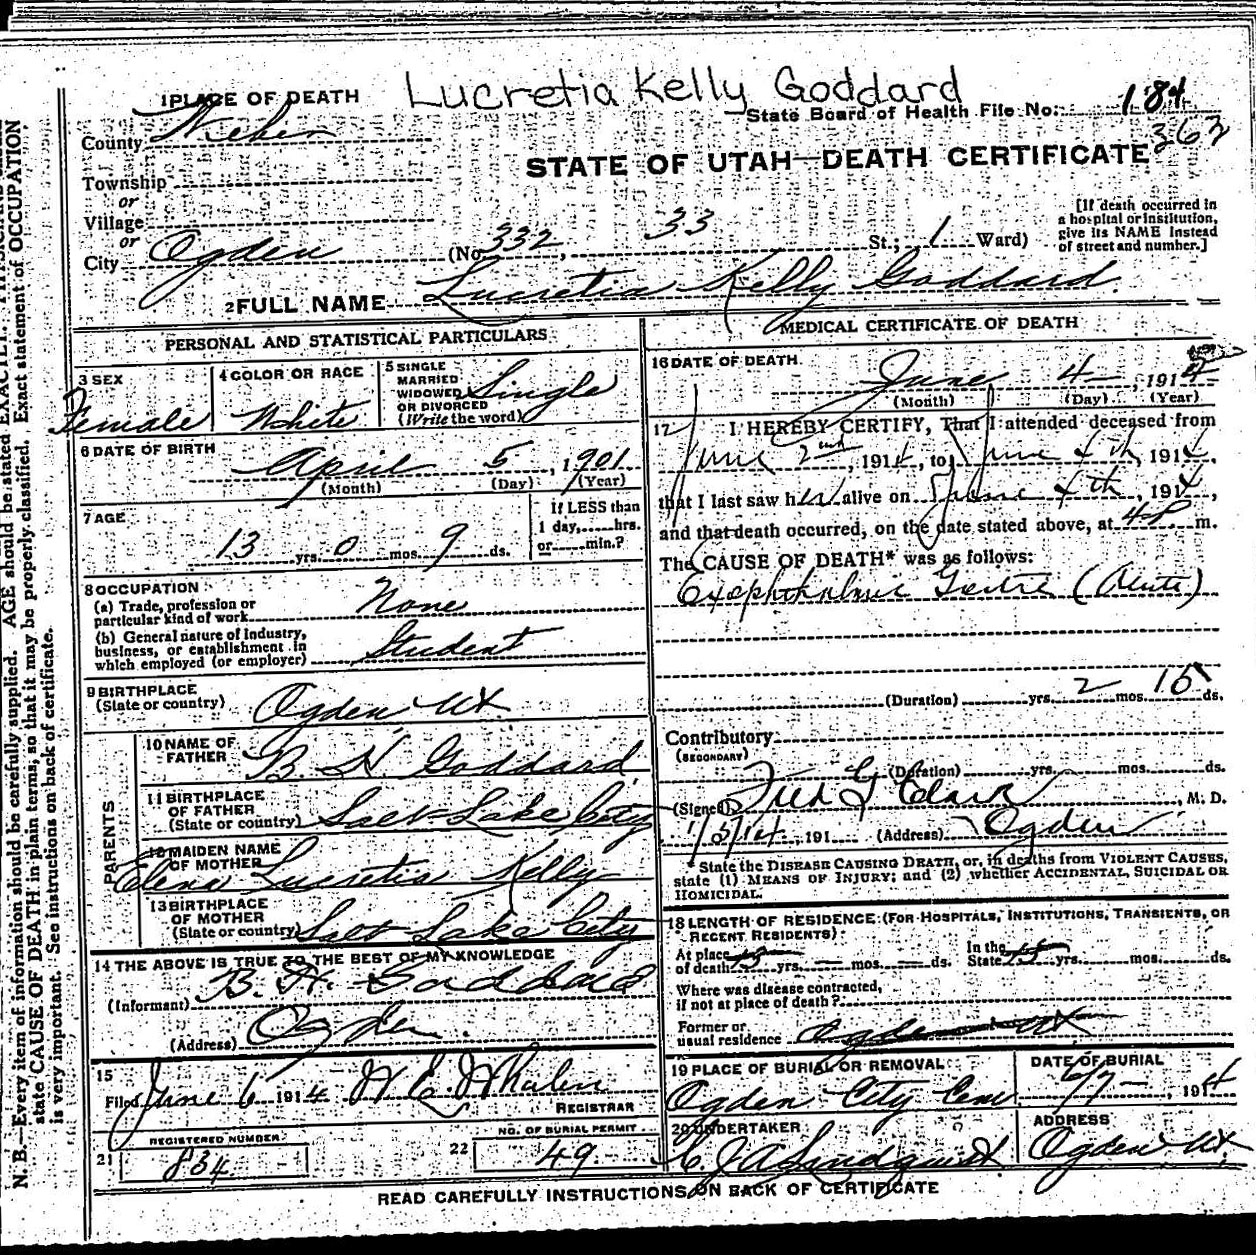 Lucretia Kelly Goddard
1 PLACE OF DEATH
State Board of Health File No. 184
County Weber
363
STATE OF UTAH—DEATH CERTIFICATE
Township
or
Village
or
City Ogden (No. 332, 33 St.; 1 Ward)
[If death occurred in a hospital or institution, give its NAME instead of street and number.]
2 FULL NAME Lucretia Kelly Goddard.
PERSONAL AND STATISTICAL PARTICULARS
3 SEX
Female
4 COLOR OR RACE
White
5 SINGLE
MARRIED
WIDOWED
OR DIVORCED
(Write the word)
Single
6 DATE OF BIRTH
April 5, 1901
(Month) (Day) (Year)
7 AGE
13 yrs. 0 mos. 9 ds.
If LESS than
1 day, hrs.
or min.?
8 OCCUPATION
(a) Trade, profession or
particular kind of work None
(b) General nature of industry,
business, or establishment in
which employed (or employer) Student
9 BIRTHPLACE
(State or country) Ogden Ut
PARENTS
10 NAME OF
FATHER B. H. Goddard.
11 BIRTHPLACE
OF FATHER
(State or country) Salt Lake City
12 MAIDEN NAME
OF MOTHER
Lucretia Kelly
13 BIRTHPLACE
OF MOTHER
(State or country) Salt Lake City
14 THE ABOVE IS TRUE TO THE BEST OF MY KNOWLEDGE
(Informant) B. H. Goddard
(Address) Ogden.
15
Filed June 6 1914 W. E. Whalen
REGISTRAR
REGISTERED NUMBER
21 834
NO. OF BURIAL PERMIT
22 49
MEDICAL CERTIFICATE OF DEATH
16 DATE OF DEATH
June 4, 1914
(Month) (Day) (Year)
17 I HEREBY CERTIFY, That I attended deceased from
June 2nd, 1914, to June 4th, 1914,
that I last saw her alive on June 4th, 1914,
and that death occurred, on the date stated above, at 4 P m.
The CAUSE OF DEATH* was as follows:
Exophthalmic Goitre (Acute)
(Duration) yrs. 2 mos. 15 ds.
Contributory
(SECONDARY)
(Duration) yrs. mos. ds.
(Signed) Fred G Clark, M. D.
191 (Address) Ogden
*State the DISEASE CAUSING DEATH, or, in deaths from VIOLENT CAUSES,
state (1) MEANS OF INJURY; and (2) whether ACCIDENTAL, SUICIDAL OR
HOMICIDAL.
18 LENGTH OF RESIDENCE (FOR HOSPITALS, INSTITUTIONS, TRANSIENTS, OR
RECENT RESIDENTS)
At place
of death 13 yrs. — mos. — ds.
In the
State 13 yrs. mos. ds.
Where was disease contracted,
if not at place of death?
Former or
usual residence Ogden Ut
19 PLACE OF BURIAL OR REMOVAL
Ogden City Cem
DATE OF BURIAL
6/7—, 1914
20 UNDERTAKER
Lindquist
ADDRESS
Ogden Ut.
READ CAREFULLY INSTRUCTIONS ON BACK OF CERTIFICATE
N. B.—Every item of information should be carefully supplied. AGE should be stated EXACTLY.
state CAUSE OF DEATH in plain terms, so that it may be properly classified. Exact statement of OCCUPATION
is very important. See instructions on back of certificate.